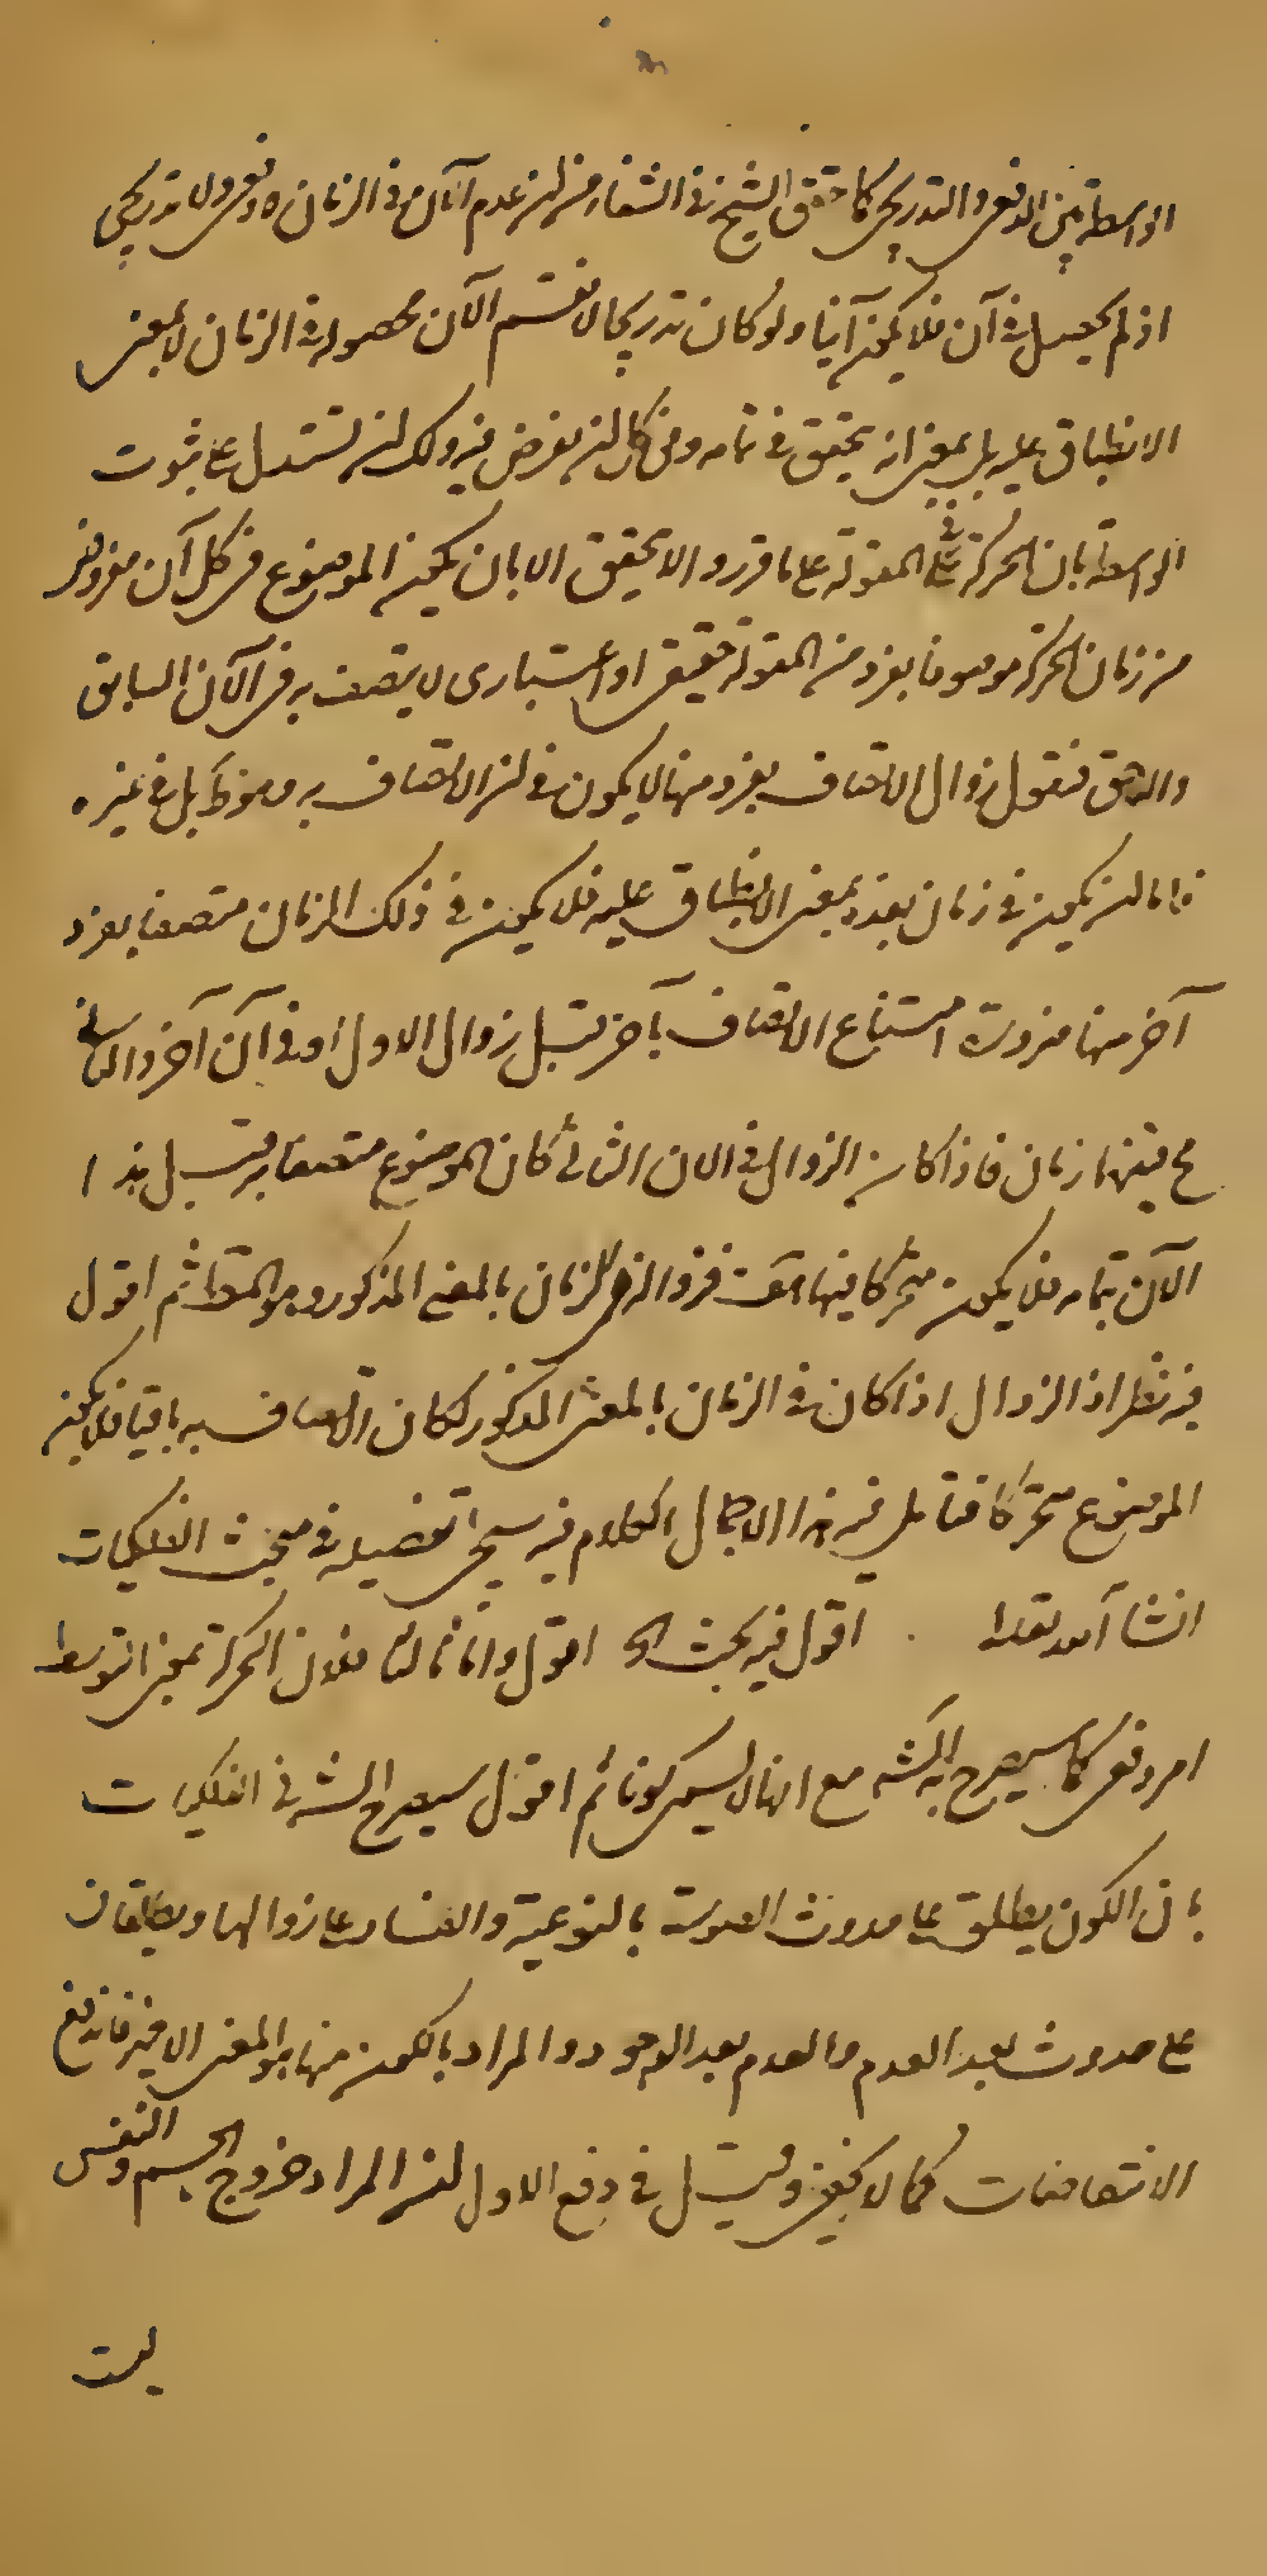 الواسطة بين الدفعى والتدريجى كما حقق الشيخ فى الشفاء من ان عدم الآن فى الزمان لا دفعى ولا تدريجى
اذ لم يحصل فى آن فلا يكون آنيا ولو كان تدريجيا لانقسم الآن بحصوله فى الزمان لا بمعنى
الانطباق عليه بل بمعنى انه يتحقق فى تمامه وفى كل ان يفرض فيه ولك ان تستدل على ثبوت
الواسطة بان الحركة فى المقولة على ما قرروا لا يتحقق الا بان يكون الموضوع فى كل آن مفروض
من زمان الحركة موصوفا بفرد من المقولة حقيقى او اعتبارى لا يتصف به فى الآن السابق
واللاحق فنقول زوال الاتصاف بفرد منها لا يكون فى ان الاتصاف به وهو ظ بل فى غيره
فاما ان يكون فى زمان بعده بمعنى الانطباق عليه فلا يكون فى ذلك الزمان متصفا بفرد
آخر منها ضرورة امتناع الاتصاف بآخر قبل زوال الاول او فى آن آخر والثانى
ح بينهما زمان فاذا كان الزوال فى الان الثانى كان الموضوع متصفا به قبل هذا
الآن بتمامه فلا يكون متحركا فيها هف فزواله فى الزمان بالمعنى المذكور وهو المقصود ثم اقول
فيه نظر اذ الزوال اذا كان فى الزمان بالمعنى المذكور لكان الاتصاف به باقيا فلا يكون
الموضوع متحركا فتأمل فيه هذا اجمال الكلام فيه سيجئ تفصيله فى مبحث الفلكيات
انشا آلله تعالى اقول فيه بحث الخ اقول واما ثالثا فلان الحركة بمعنى التوسط
امر دفعى كما سيصرح به الش مع انها لا يسمى كونا ثم اقول سيصرح الش فى الفلكيات
بان الكون يطلق على حدوث الصورة بالنوعية والفساد على زوالها ويطلقان
على حدوث بعد العدم والعدم بعد الوجود والمراد بالكون منها هو المعنى الاخير فاندفع
الانتقاضات كما لا يخفى وقيل فى دفع الاول ان المراد خروج الجسم والنفس
ليست